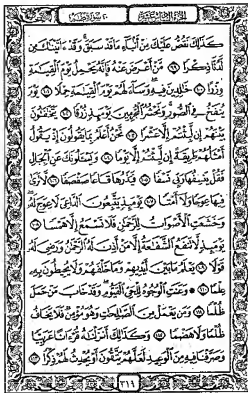 كَذَٰلِكَ نَقُصُّ عَلَيْكَ مِنْ أَنۢبَآءِ مَا قَدْ سَبَقَ وَقَدْ ءَاتَيْنَٰكَ مِن
لَّدُنَّا ذِكْرًا ٩٩ مَّنْ أَعْرَضَ عَنْهُ فَإِنَّهُۥ يَحْمِلُ يَوْمَ ٱلْقِيَٰمَةِ
وِزْرًا ١٠٠ خَٰلِدِينَ فِيهِ وَسَآءَ لَهُمْ يَوْمَ ٱلْقِيَٰمَةِ حِمْلًا ١٠١ يَوْمَ
يُنفَخُ فِى ٱلصُّورِ وَنَحْشُرُ ٱلْمُجْرِمِينَ يَوْمَئِذٍ زُرْقًا ١٠٢ يَتَخَٰفَتُونَ
بَيْنَهُمْ إِن لَّبِثْتُمْ إِلَّا عَشْرًا ١٠٣ نَّحْنُ أَعْلَمُ بِمَا يَقُولُونَ إِذْ يَقُولُ
أَمْثَلُهُمْ طَرِيقَةً إِن لَّبِثْتُمْ إِلَّا يَوْمًا ١٠٤ وَيَسْـَٔلُونَكَ عَنِ ٱلْجِبَالِ
فَقُلْ يَنسِفُهَا رَبِّى نَسْفًا ١٠٥ فَيَذَرُهَا قَاعًا صَفْصَفًا ١٠٦ لَّا تَرَىٰ
فِيهَا عِوَجًا وَلَآ أَمْتًا ١٠٧ يَوْمَئِذٍ يَتَّبِعُونَ ٱلدَّاعِىَ لَا عِوَجَ لَهُۥ
وَخَشَعَتِ ٱلْأَصْوَاتُ لِلرَّحْمَٰنِ فَلَا تَسْمَعُ إِلَّا هَمْسًا ١٠٨
يَوْمَئِذٍ لَّا تَنفَعُ ٱلشَّفَٰعَةُ إِلَّا مَنْ أَذِنَ لَهُ ٱلرَّحْمَٰنُ وَرَضِىَ لَهُۥ
قَوْلًا ١٠٩ يَعْلَمُ مَا بَيْنَ أَيْدِيهِمْ وَمَا خَلْفَهُمْ وَلَا يُحِيطُونَ بِهِۦ
عِلْمًا ١١٠ وَعَنَتِ ٱلْوُجُوهُ لِلْحَىِّ ٱلْقَيُّومِ وَقَدْ خَابَ مَنْ حَمَلَ
ظُلْمًا ١١١ وَمَن يَعْمَلْ مِنَ ٱلصَّٰلِحَٰتِ وَهُوَ مُؤْمِنٌ فَلَا يَخَافُ
ظُلْمًا وَلَا هَضْمًا ١١٢ وَكَذَٰلِكَ أَنزَلْنَٰهُ قُرْءَانًا عَرَبِيًّا
وَصَرَّفْنَا فِيهِ مِنَ ٱلْوَعِيدِ لَعَلَّهُمْ يَتَّقُونَ أَوْ يُحْدِثُ لَهُمْ ذِكْرًا ١١٣
٣١٩